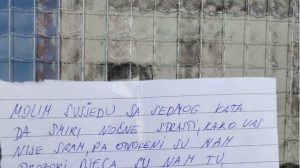 MOLIM SUSJEDU SA SEDMOG KATA
DA SMIRI NOĆNE STRASTI, KAKO VAS
NIJE SRAM, PA OTVORENI SU NAM
PROZORI DJECA SU NAM TU,